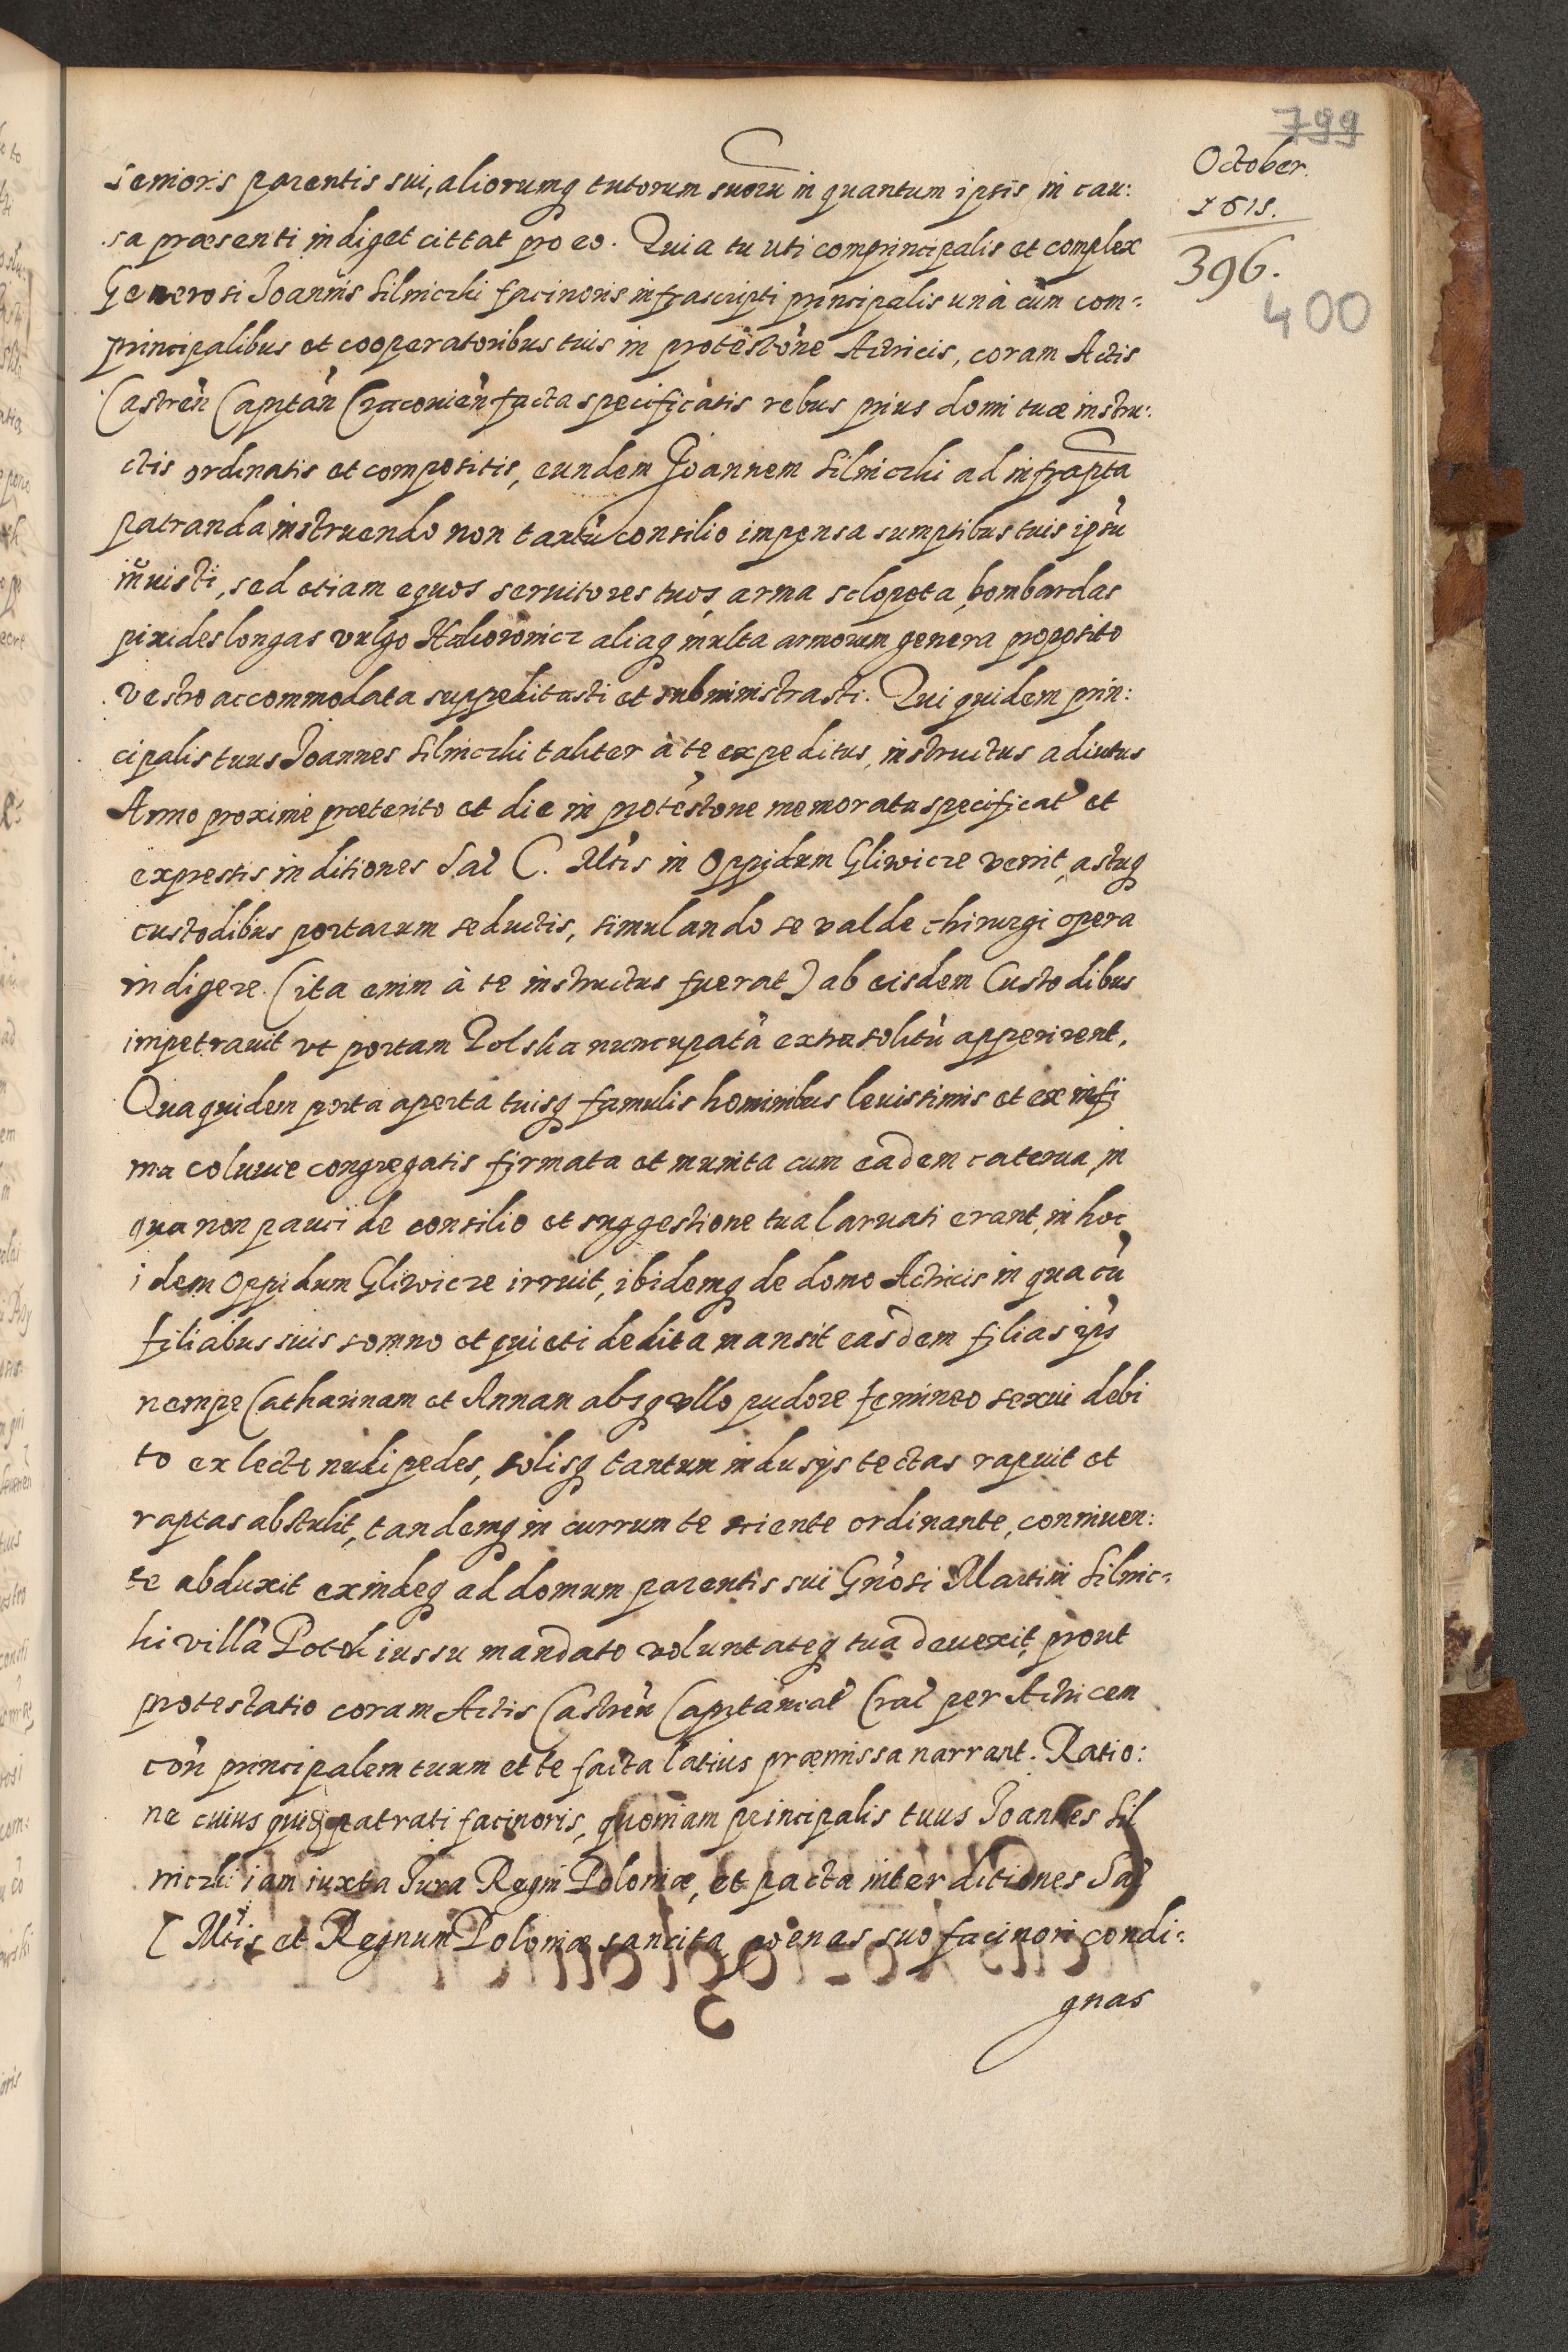 799
October.
1615.
396.
400
senioris parentis sui, aliorumq tutorum suorū in quantum ipsis in cau:
sa præsenti indiget cittat pro eo. Quia tu uti comprincipalis et complex
Generosi Joannis Silniczki facinoris infrascripti principalis unà cùm com:
principalibus et cooperatoribus tuis in protestōne Actricis, coram Actis
Castreń Captań Cracovień facta specificatis rebus prius domi tuæ instru:
ctis ordinatis et compositis, eundem Joannem Silniczki ad infrapta
patranda instruendo non tantū consilio impensa sumptibus tuis ipsū
iñuisti, sed etiam equos seruitores tuos, arma sclopeta, bombardas
pixides longas vulgo aliaq multa armorum genera proposito
vestro accommodata suppeditasti et subministrasti. Qui quidem prin:
cipalis tuus Joannes Silniczki taliter à te expeditus, instructus adiutus
Anno proxime præterito et die in protestone memorata specificat et
expressis in ditiones Sac C. Mtis in Oppidum Gliwicze venit, astuq
custodibus portarum seductis, simulando se valde chirurgi opera
indigere. (ita enim à te instructus fuerat) ab eisdem Custodibus
impetrauit vt portam Polska nuncupatā extra solitū apperirent.
Qua quidem porta aperta tuisq famulis hominibus leuissimis et ex infi
ma coluuie congregatis firmata et munita cum eadem caterua, in
qua non pauci de consilio et suggestione tua laruati erant, in hoc
idem Oppidum Gliwicze irruit, ibidemq de domo Actricis in qua cū
filiabus suis somno et quieti dedita mansit easdem filias ips
nempe Catharinam et Annam absq ullo pudore femineo sexui debi
to ex lecto nudipedes, solisq tantum indusijs tectas rapuit et
raptas abstulit, tandemq in currum te sciente ordinante, conniuen:
te abduxit exindeq ad domum parentis sui Gnosi Martini Silnic:
ki villā Potok iussu mandato voluntateq tua deuexit, prout
protestatio coram Actis Castreń Captaneal Crac per Actricem
con principalem tuum et te facta latius præmissa narrant. Ratio:
ne cuius quid patrati facinoris, quoniam principalis tuus Joannes Sil
niczki iam iuxta Jura Regni Poloniæ, et pacta inter ditiones Sac
C Mtis et Regnum Poloniæ sancita, poenas suo facinori condi:
gnas